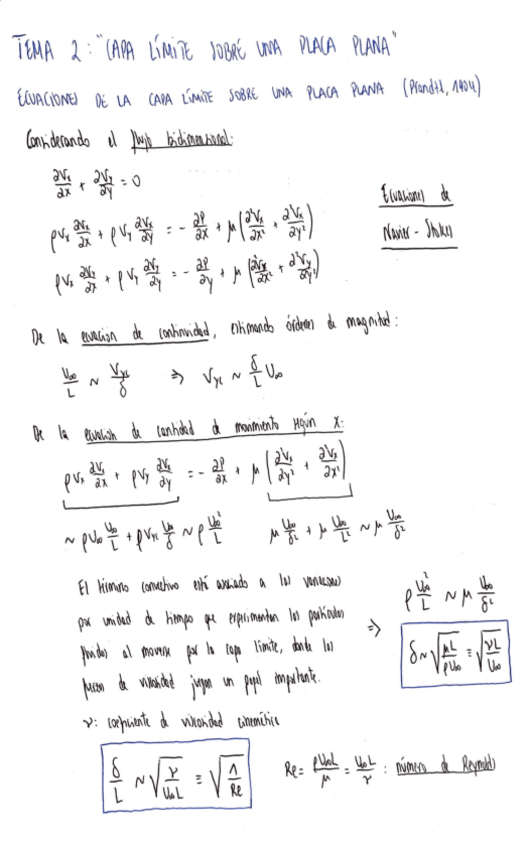 TEMA 2: "CAPA LÍMITE SOBRE UNA PLACA PLANA"
ECUACIONES DE LA CAPA LÍMITE SOBRE UNA PLACA PLANA (Prandtl, 1904)
Considerando el flujo bidimensional:
∂Vx/∂x + ∂Vy/∂y = 0
ρVx ∂Vx/∂x + ρVy ∂Vx/∂y = - ∂P/∂x + μ(∂²Vx/∂x² + ∂²Vx/∂y²)
ρVx ∂Vy/∂x + ρVy ∂Vy/∂y = - ∂P/∂y + μ(∂²Vy/∂x² + ∂²Vy/∂y²)
Ecuaciones de
Navier - Stokes
De la ecuación de continuidad, estimando órdenes de magnitud:
U∞/L ~ Vyc/δ ⇒ Vyc ~ δ/L U∞
De la ecuación de cantidad de movimiento según x:
ρVx ∂Vx/∂x + ρVy ∂Vx/∂y = - ∂P/∂x + μ(∂²Vx/∂y² + ∂²Vx/∂x²)
~ ρU∞ U∞/L + ρVyc U∞/δ ~ ρ U∞²/L μ U∞/δ² + μ U∞/L² ~ μ U∞/δ²
El término convectivo está asociado a las variaciones
por unidad de tiempo que experimentan las partículas
fluidas al moverse por la capa límite, donde las
fuerzas de viscosidad juegan un papel importante.
⇒ ρ U∞²/L ~ μ U∞/δ²
δ ~ √(μL/ρU∞) ≡ √(νL/U∞)
ν: coeficiente de viscosidad cinemática
δ/L ~ √(ν/U∞L) ≡ √(1/Re)
Re = ρU∞L/μ = U∞L/ν : número de Reynolds